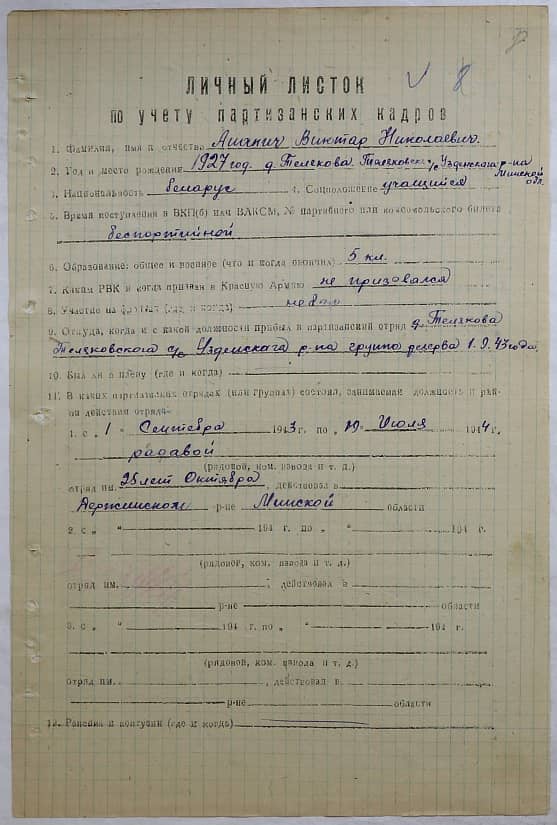 8
ЛИЧНЫЙ ЛИСТОК
по учету партизанских кадров
1. Фамилия, имя и отчество Виктар Николаевич
2. Год и место рождения 1927 год. д. Телякова. Теляковск. с/с Узденскага р-на
Минской обл.
3. Национальность беларус 4. Соцположение учащийся
5. Время поступления в ВКП(б) или ВЛКСМ, № партийного или комсомольского билета
беспортийной
6. Образование: общее и военное (что и когда окончил) 5 кл.
7. Каким РВК и когда призван в Красную Армию не призовался
8. Участие на фронтах (где и когда)
9. Откуда, когда и с какой должности прибыл в партизанский отряд д. Телякова
Теляковского с/с Узденскага р-на группа резерва 1.9.43 года.
10. Был ли в плену (где и когда)
11. В каких партизанских отрядах (или группах) состоял, занимаемая должность и рай-
он действия отряда
1. с „1 “ Сентября 1943 г. по „ “ Июля 1944 г.
радавой
(рядовой, ком. взвода и т. д.)
отряд им. 25 лет Октября, действовал в
Держинском р-не Минской области
2. с „ “ 194 г. по „ “ 194 г.
(рядовой, ком. взвода и т. д.)
отряд им. , действовал в
р-не области
3. с „ “ 194 г. по „ “ 194 г.
(рядовой, ком. взвода и т. д.)
отряд им. , действовал в
р-не области
12. Ранения и контузии (где и когда)